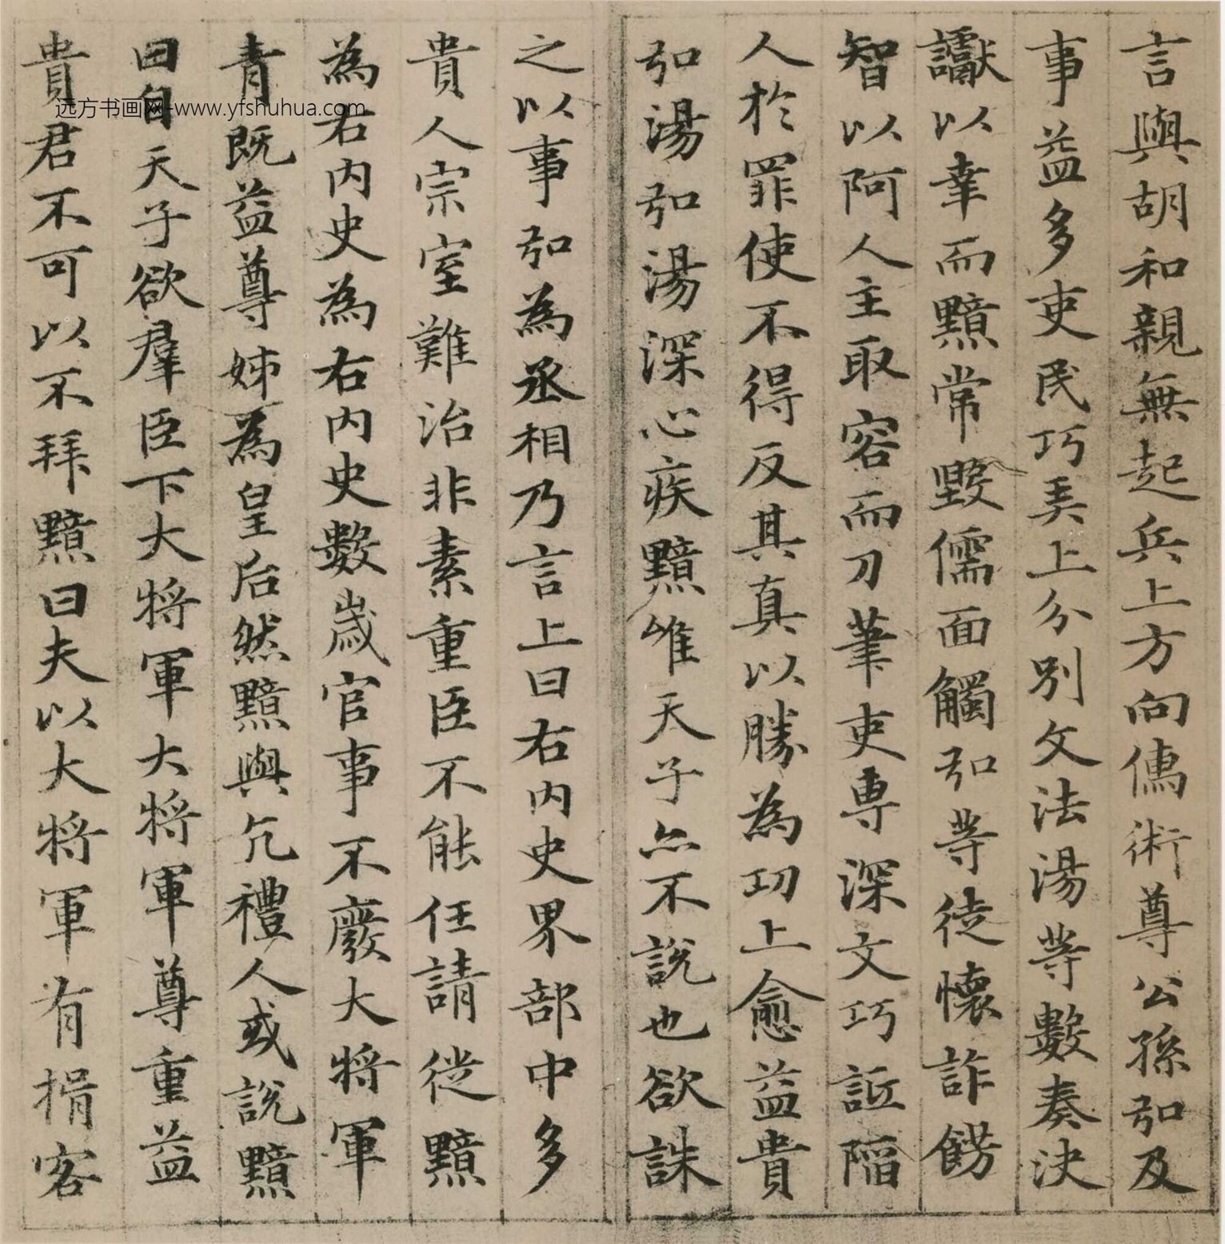 言與胡和親無起兵上方向儒術尊公孫弘及
事益多吏民巧弄上分別文法湯等數奏決
讞以幸而黯常毀儒面觸弘等徒懷詐餝
智以阿人主取容而刀筆吏專深文巧詆陷
人於罪使不得反其真以勝為功上愈益貴
弘湯弘湯深心疾黯唯天子亦不說也欲誅
之以事弘為丞相乃言上曰右內史界部中多
貴人宗室難治非素重臣不能任請徙黯
為右內史為右內史數歲官事不廢大將軍
青既益尊姊為皇后然黯與亢禮人或說黯
曰自天子欲羣臣下大將軍大將軍尊重益
貴君不可以不拜黯曰夫以大將軍有揖客
远方书画网-www.yfshuhua.com